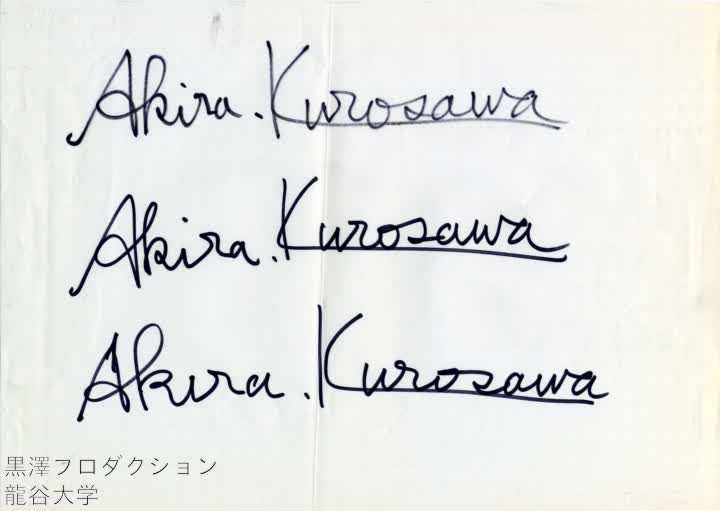 Akira. Kurosawa
Akira. Kurosawa
Akira. Kurosawa
黒澤フロダクション
龍谷大学